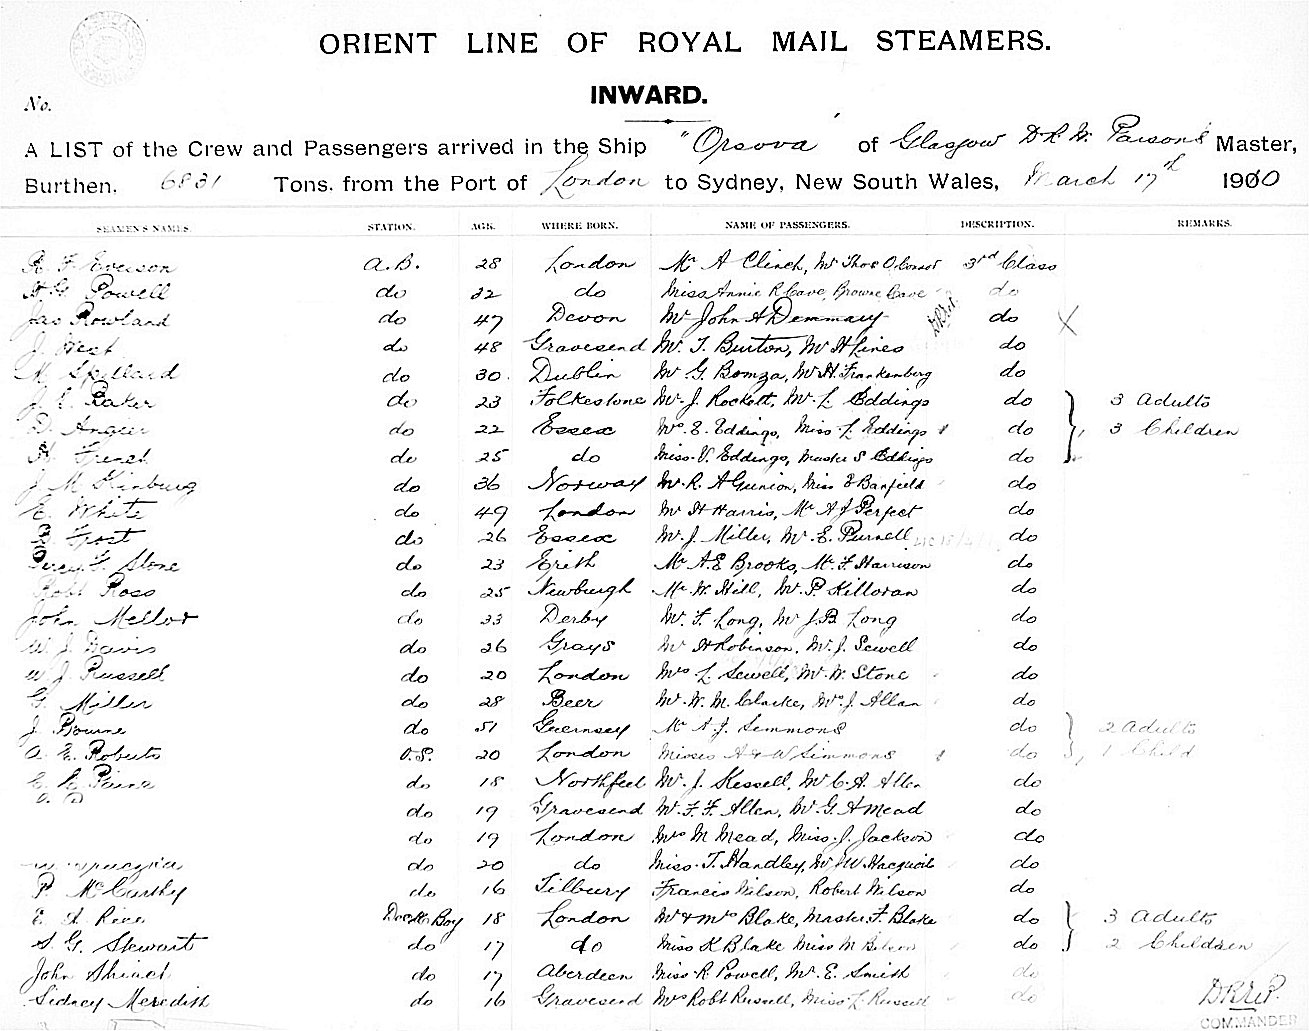 ORIENT LINE OF ROYAL MAIL STEAMERS.
INWARD.
No.
A LIST of the Crew and Passengers arrived in the Ship "Orsova" of Glasgow Master,
Burthen. 6831 Tons. from the Port of London to Sydney, New South Wales, March 17th 1910
SEAMEN'S NAMES. STATION. AGE. WHERE BORN. NAME OF PASSENGERS. DESCRIPTION. REMARKS.
R. F. Everson A.B. 28 London Mr A Clinch, Mr Thos O'Connor 3rd Class
H. G. Powell do 22 do Miss Annie R Cave, Browne Cave do
Jas Rowland do 47 Devon Mr John A Demmary do X
J. West do 48 Gravesend Mr. T. Burton, Mr H Lines do
M. Spillard do 30. Dublin Mr G. Bomza, Mr H. Frankenberg do
J. C. Baker do 23 Folkestone Mr. J. Rockett, Mr. L Eddings do 3 Adults
D. Angier do 22 Essex Mrs. E. Eddings, Miss. L. Eddings do 3 Children
H. French do 25 do Miss. V. Eddings, Master S Eddings do
J. M. do 36 Norway Mr. R. A Gunion, Miss E Banfield do
E. White do 49 London Mr H Harris, Mr A J Perfect do
Frost do 26 Essex Mr. J. Miller, Mr. E. Purnell do
Percy F. Stone do 23 Erith Mr A.E Brooks, Mr. F. Harrison do
Robt Ross do 25 Newburgh Mr. W. Hill, Mr. P. Killoran do
John Mellor do 33 Derby Mr. F. Long, Mr J.B Long do
W. J. Davis do 26 Grays Mr H Robinson, Mr. J. Sewell do
W. J. Russell do 20 London Mrs L. Sewell, Mr. W. Stone do
G. Miller do 28 Beer Mr. W. M. Clarke, Mrs. J. Allan do
J. Bourne do 51 Guernsey Mr A. J. Simmons do 2 Adults
A. E. Roberts O.S. 20 London Misses A & W Simmons do 1 Child
do 18 Northfleet Mr. J. Kessell, Mr C. A. Allen do
do 19 Gravesend Mr. F. F. Allen, Mr G. A Mead do
do 19 London Mrs M Mead, Miss. J. Jackson do
do 20 do Miss. T. Handley, Mr W. do
P. McCarthy do 16 Tilbury Francis Wilson, Robert Wilson do
E. Deck Boy 18 London Mr & Mrs Blake, Master F. Blake do 3 Adults
S. G. Stewart do 17 do Miss K Blake Miss M do 2 Children
John do 17 Aberdeen Miss R. Powell, Mr. E. Smith do
Sidney Meredith do 16 Gravesend Mrs Robt Russell, Miss L. Russell do
COMMANDER